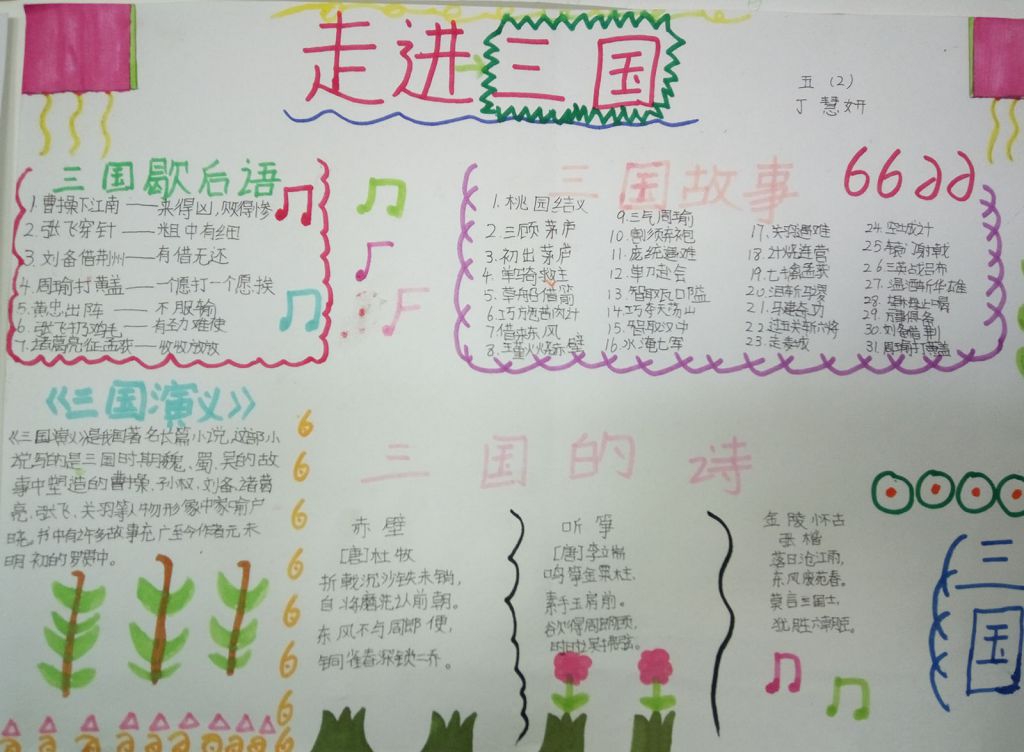 走进三国
五（2）
丁慧妍
三国歇后语
1.曹操下江南——来得凶,败得惨
2.张飞穿针——粗中有细
3.刘备借荆州——有借无还
4.周瑜打黄盖——一个愿打一个愿挨
5.黄忠出阵——不服输
6.张飞打鸡毛——有劲难使
7.诸葛亮征孟获——收收放放
三国故事
1.桃园结义
2.三顾茅庐
3.初出茅庐
4.单骑救主
5.草船借箭
6.巧施苦肉计
7借东风
8.
9.三气周瑜
10.割须弃袍
11.庞统遇难
12.单刀赴会
13.智取瓦口隘
14.巧夺天荡山
15.智取汉中
16.水淹七军
17.关羽遇难
18.计烧连营
19.七擒孟获
20.泪斩马谡
21.马建奇功
22.过五关斩六将
23.走麦城
24.空城计
25.辕门射戟
26三英战吕布
27.温酒斩华雄
28.
29.
30.刘备借荆
31.周瑜打黄盖
《三国演义》
《三国演义》是我国著名长篇小说,这部小
说写的是三国时期魏、蜀、吴的故
事中塑造的曹操、孙权、刘备、诸葛
亮、张飞、关羽等人物形象中家喻户
晓。书中有2许多故事充广至今作者元末
明初的罗贯中。
三国的诗
赤壁
[唐]杜牧
折戟沉沙铁未销,
自将磨洗认前朝。
东风不与周郎便,
铜雀春深锁二乔。
听筝
[唐]李端
鸣筝金粟柱.
素手玉房前。
欲得周郎顾,
时时误拂弦。
金陵怀古
落日沧江雨,
东风废苑春。
莫言三国士,
犹胜六朝
三国